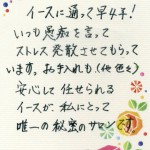 イースに通って早4年!
いつも愚痴を言って
ストレス発散させてもらって
います。お手入れも、(他色々)
安心して任せられる
イースが、私にとって
唯一の秘密のサロンです